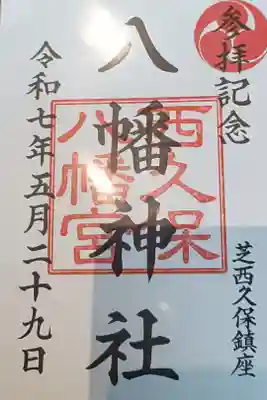 參拝記念
芝西久保鎮座
八幡神社
西久保
八幡宮
令和七年五月二十九日